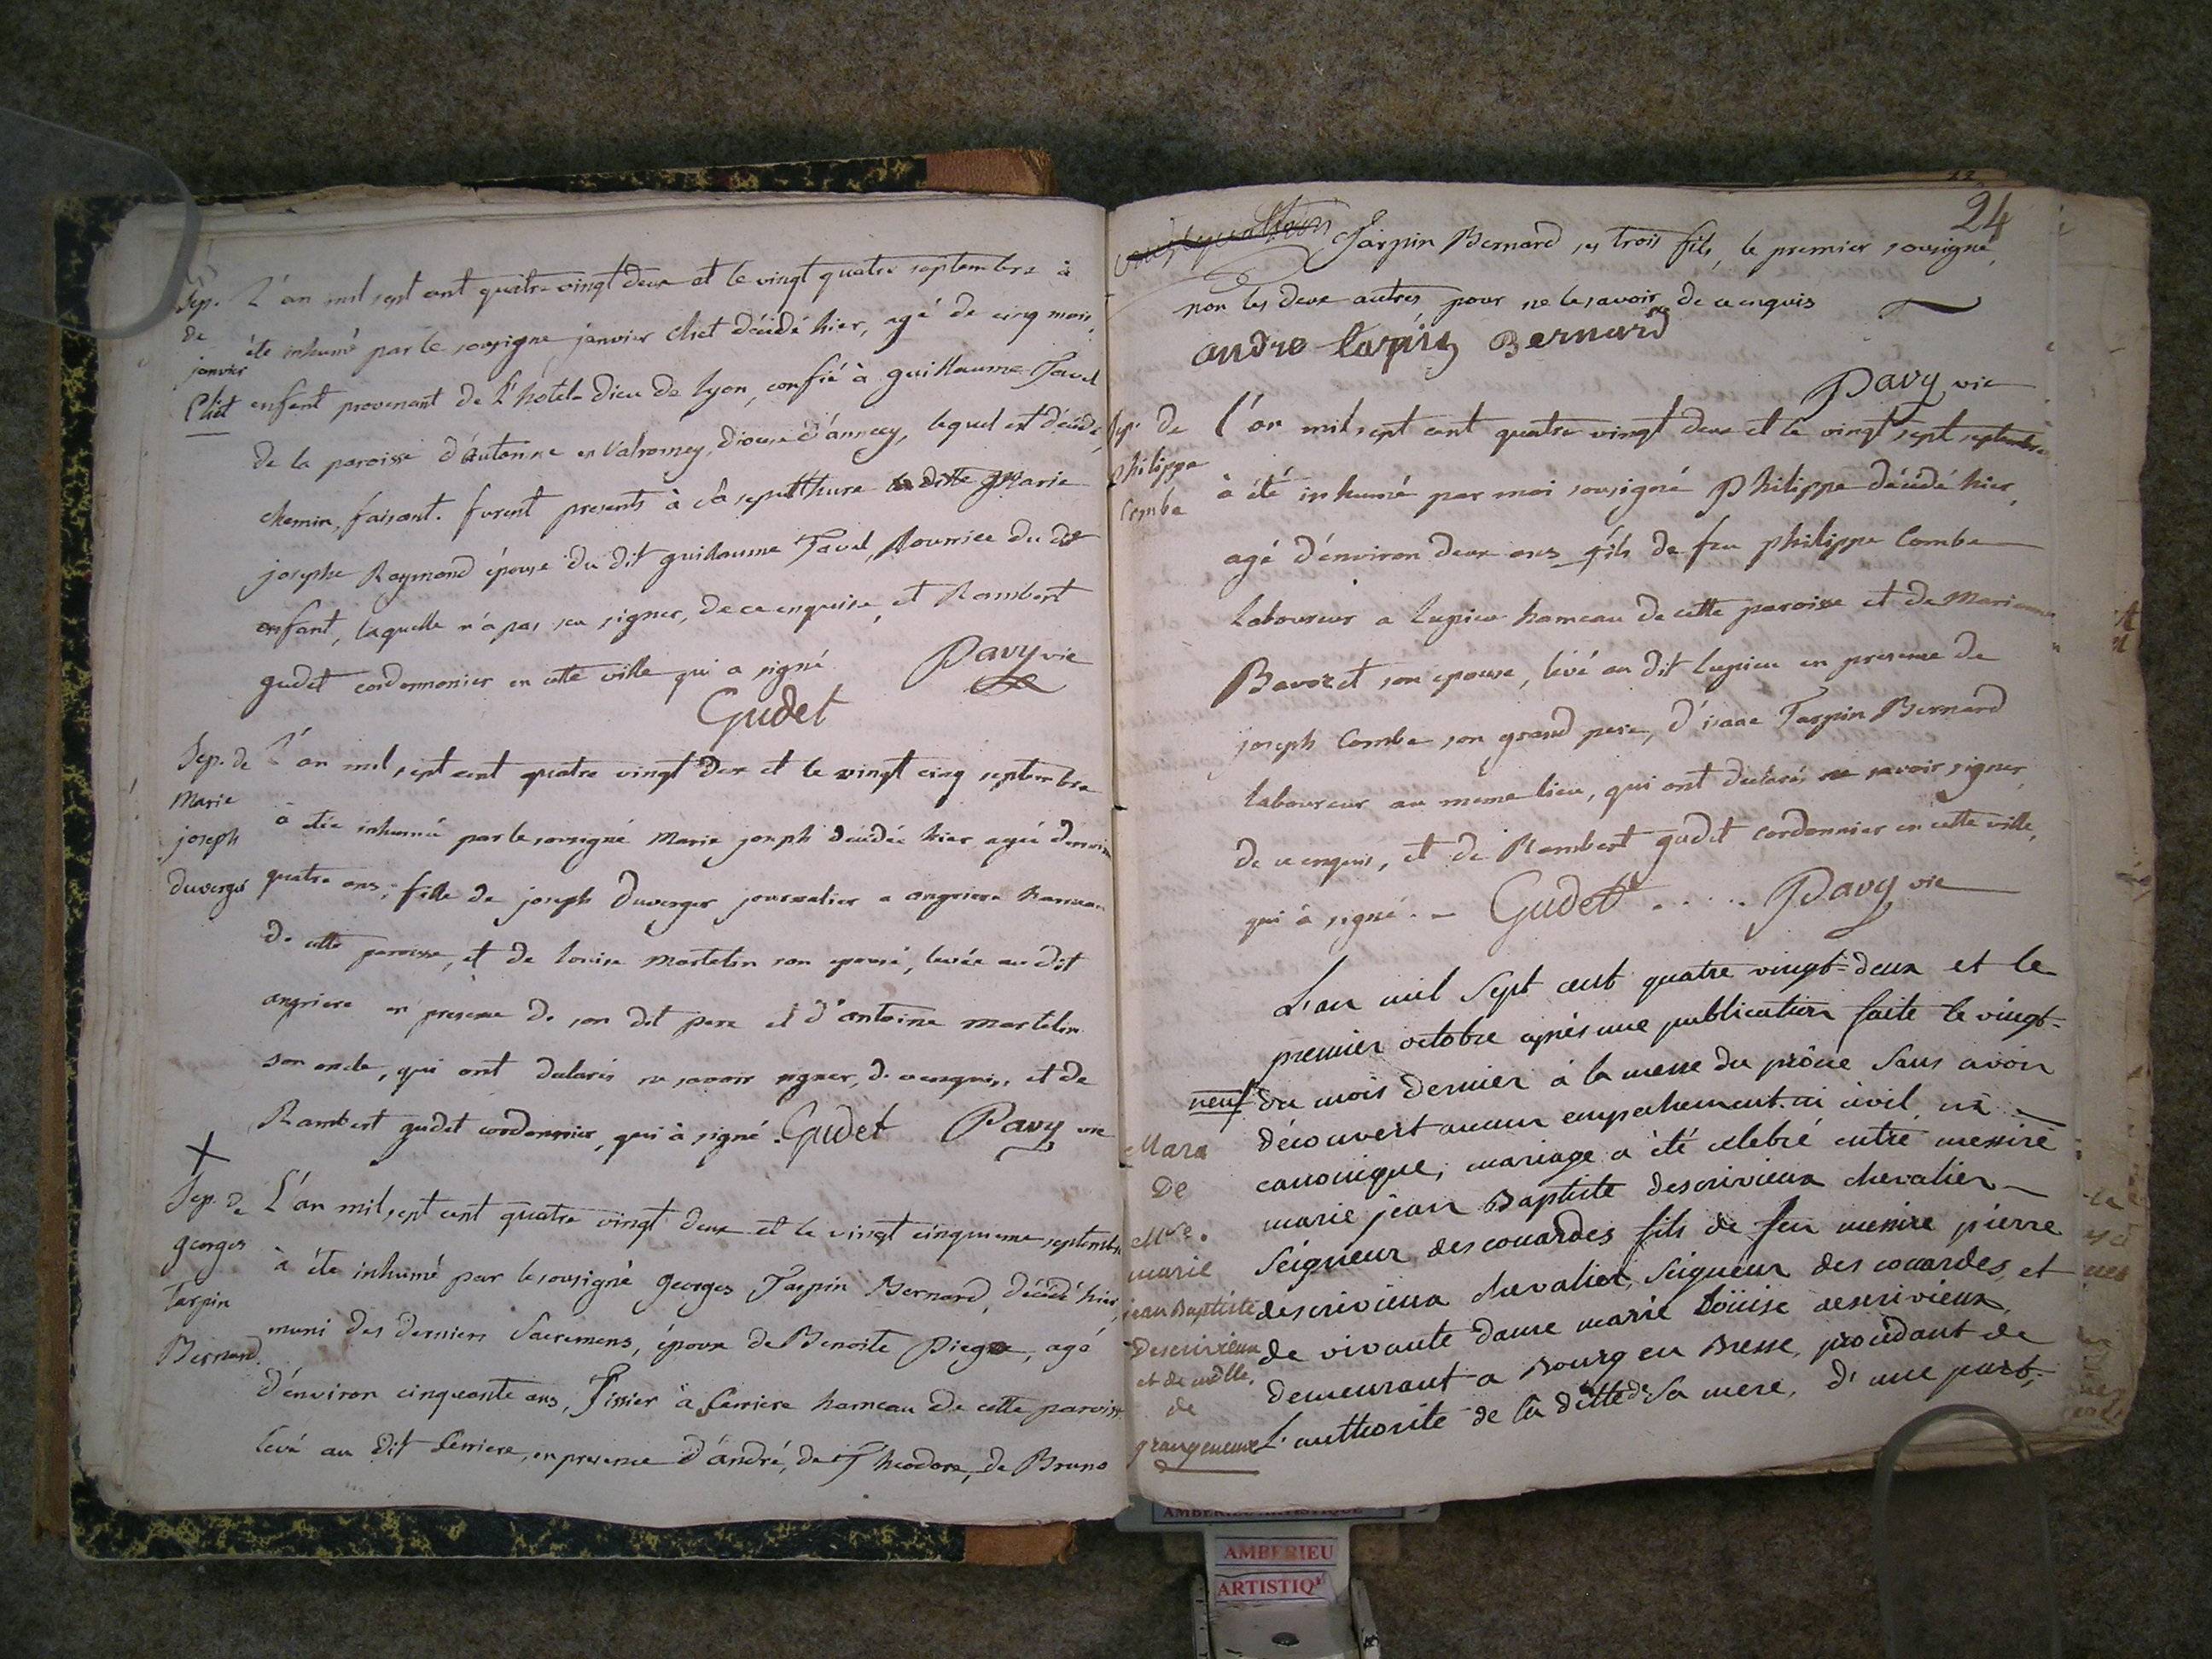 Sep.
de
janvier
Chet
L'an mil sept cent quatre vingt deux et le vingt quatre septembre à
été inhumé par le sousigné janvier Chet décédé hier, agé de cinq mois,
enfant provenant de l'hotel-dieu de lyon, confié à guillaume Tavel
de la paroisse d'Autonne en Valromey, diocese d'annecy, lequel est décédé,
chemin, faisant. furent presents à sa sepulthure la ditte Marie
josephe Raymond épouse du dit guillaume Tavel, Nourrice du dit
enfant, laquelle n'a pas sçu signer, de ce enquise, et Rambert
gudet cordonnonier en cette ville qui a signé Pavy vic
Gudet
Sep. de
Marie
joseph
duverger
L'an mil sept cent quatre vingt deux et le vingt cinq septembre
à étée inhumée par le sousigné Marie joseph décédée hier agée d'environ
quatre ans, fille de joseph duverger journalier a angriere hameau
de cette paroisse, et de louise martelin son epouse, levée au dit
angriere en presence de son dit pere et d'antoine martelin
son oncle, qui ont declarés ne savoir signer, de ce enquis, et de
Rambert gudet cordonnier, qui à signé. Gudet Pavy vic
+
Sep. de
georges
Tarpin
Bernard
L'an mil sept cent quatre vingt deux et le vingt cinquieme septembre
à éte inhumé par le sousigné georges Tarpin Bernard, décédé hier,
muni des derniers Sacremens, époux de Benoite, agé
d'environ cinquante ans, Tissier à Serriere hameau de cette paroisse
levé au dit Serriere, en presence d'andré, de Theodore, de Bruno
24
Tarpin Bernard ses trois fils, le premier sousigné,
non les deux autres, pour ne le savoir de ce enquis
andre tarpin Bernard
Pavy vic
Sep. de
philippe
Combe
l'an mil sept cent quatre vingt deux et le vingt sept septembre
à été inhumé par moi sousigné Philippe décédé hier,
agé d'environ deux ans fils de feu philippe Combe
laboureur a lupieu hameau de cette paroisse et de Marianne
Bavozet son epouse, levé au dit lupieu en presence de
joseph Combe son grand pere, d'isaac Tarpin Bernard
laboureur au meme lieu, qui ont declarés ne savoir signer,
de ce enquis, et de Rambert gudet cordonnier en cette ville,
qui à signé. - Gudet ..... Pavy vic
L'an mil sept cent quatre vingt-deux et le
premier octobre après une publication faite le vingt-
neuf du mois dernier à la messe du prône sans avoir
découvert aucun empechement ni civil ni
canonique, mariage a été celebré entre messire
marie jean Baptiste descrivieux chevalier
Seigneur des couardes fils de feu messire pierre
descrivieux chevalier, Seigneur des couardes, et
de vivante dame marie Loüise descrivieux,
demeurant a Bourg en Bresse, procédant de
L'authorité de la ditte de Sa mere, d'une part;
Mara
De
Mre.
marie
jean Baptiste
Descrivieux
et de mdlle.
de
grangeneuve
AMBERIEU ARTISTIQUE
AMBERIEU
ARTISTIQ